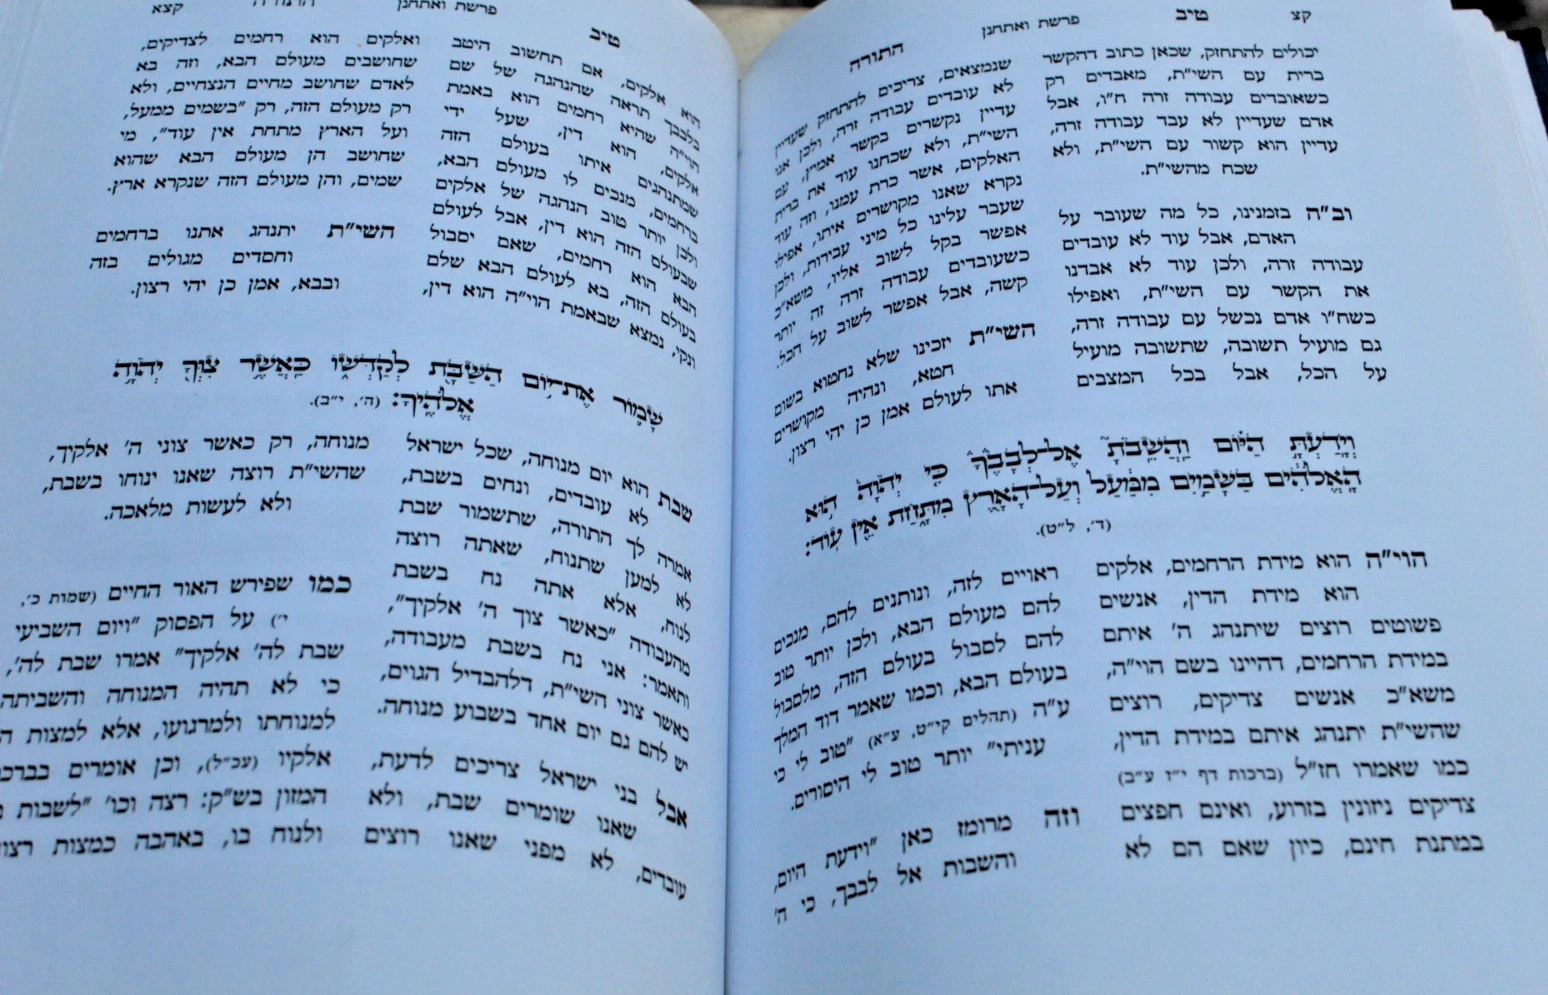 קצ
טיב
פרשת ואתחנן
התורה
יכולים להתחזק, שכאן כתוב דהקשר
ברית עם השי״ת, מאבדים רק
כשאובדים עבודה זרה ח״ו, אבל
אדם שעדיין לא עבד עבודה זרה,
עדיין הוא קשור עם השי״ת, ולא
שכח מהשי״ת.
וב״ה בזמנינו, כל מה שעובר על
האדם, אבל עוד לא עובדים
עבודה זרה, ולכן עוד לא אבדנו
את הקשר עם השי״ת, ואפילו
כשח״ו אדם נכשל עם עבודה זרה,
גם מועיל תשובה, שתשובה מועיל
על הכל, אבל בכל המצבים
שנמצאים, צריכים להתחזק שעדיין
לא עובדים עבודה זרה, ולכן אנו
עדיין נקשרים בקשר אמיץ, עם
השי״ת, ולא שכחנו עוד את ברית
האלקים, אשר כרת עמנו, וזה עוד
נקרא שאנו מקושרים איתו, אפילו
שעבר עלינו כל מיני עבירות, ולכן
אפשר בקל לשוב אליו, משא״כ
כשעובדים עבודה זרה זה יותר
קשה, אבל אפשר לשוב על הכל.
השי״ת יזכינו שלא נחטוא בשום
חטא, ונהיה מקושרים
אתו לעולם אמן כן יהי רצון.
וְיָדַעְתָּ֣ הַיּ֗וֹם וַהֲשֵׁבֹתָ֮ אֶל־לְבָבֶךָ֒ כִּ֤י יְהֹוָה֙ ה֣וּא
הָֽאֱלֹהִ֔ים בַּשָּׁמַ֣יִם מִמַּ֔עַל וְעַל־הָאָ֖רֶץ מִתָּ֑חַת אֵ֖ין עֽוֹד׃
(ד׳, ל״ט).
הוי״ה הוא מידת הרחמים, אלקים
הוא מידת הדין, אנשים
פשוטים רוצים שיתנהג ה׳ איתם
במידת הרחמים, דהיינו בשם הוי״ה,
משא״כ אנשים צדיקים, רוצים
שהשי״ת יתנהג איתם במידת הדין,
כמו שאמרו חז״ל (ברכות דף י״ז ע״ב)
צדיקים ניזונין בזרוע, ואינם חפצים
במתנת חינם, כיון שאם הם לא
ראויים לזה, ונותנים להם, מנכים
להם מעולם הבא, ולכן יותר טוב
להם לסבול בעולם הזה, מלסבול
בעולם הבא, וכמו שאמר דוד המלך
ע״ה (תהלים קי״ט, ע״א) ״טוב לי כי
עניתי״ יותר טוב לי היסורים.
וזה מרומז כאן ״וידעת היום,
והשבות אל לבבך, כי ה׳
טיב
פרשת ואתחנן
התורה
קצא
הוא אלקים, אם תחשוב היטב
בלבבך תראה שהנהגה של שם
הוי״ה שהיא רחמים הוא באמת
אלקים, הוא דין, שעל ידי
שמתנהגים איתו בעולם הזה
ברחמים, מנכים לו מעולם הבא,
ולכן יותר טוב הנהגה של אלקים
שבעולם הזה הוא דין, אבל לעולם
הבא הוא רחמים, שאם יסבול
בעולם הזה, בא לעולם הבא שלם
ונקי, נמצא שבאמת הוי״ה הוא דין,
ואלקים הוא רחמים לצדיקים,
שחושבים מעולם הבא, וזה בא
לאדם שחושב מחיים הנצחיים, ולא
רק מעולם הזה, רק ״בשמים ממעל,
ועל הארץ מתחת אין עוד״, מי
שחושב הן מעולם הבא שהוא
שמים, והן מעולם הזה שנקרא ארץ.
השי״ת יתנהג אתנו ברחמים
וחסדים מגולים בזה
ובבא, אמן כן יהי רצון.
שָׁמ֛וֹר אֶת־י֥וֹם הַשַּׁבָּ֖ת לְקַדְּשׁ֑וֹ כַּאֲשֶׁ֥ר צִוְּךָ֖ יְהֹוָ֥ה
אֱלֹהֶֽיךָ׃ (ה׳, י״ב).
שבת הוא יום מנוחה, שכל ישראל
לא עובדים, ונחים בשבת,
אמרה לך התורה, שתשמור שבת
לא למען שתנוח, שאתה רוצה
לנוח, אלא אתה נח בשבת
מהעבודה ״כאשר צוך ה׳ אלקיך״,
ותאמר: אני נח בשבת מעבודה,
כאשר צוני השי״ת, דלהבדיל הגוים,
יש להם גם יום אחד בשבוע מנוחה.
אבל בני ישראל צריכים לדעת,
שאנו שומרים שבת, ולא
עובדים, לא מפני שאנו רוצים
מנוחה, רק כאשר צוני ה׳ אלקיך,
שהשי״ת רוצה שאנו ינוחו בשבת,
ולא לעשות מלאכה.
כמו שפירש האור החיים (שמות כ׳,
י׳) על הפסוק ״ויום השביעי
שבת לה׳ אלקיך״ אמרו שבת לה׳,
כי לא תהיה המנוחה והשביתה
למנוחתו ולמרגועו, אלא למצות
אלקיו (עכ״ל), וכן אומרים
המזון בש״ק: רצה וכו׳ ״לשבות
ולנוח בו, באהבה כמצות